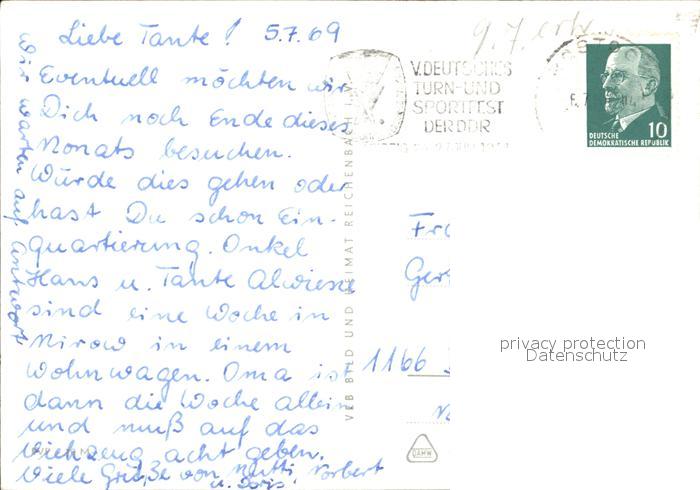 Liebe Tante! 5.7.69
Eventuell möchten wir
Dich noch Ende dieses
Monats besuchen.
Würde dies gehen oder
hast Du schon Ein-
quartierung. Onkel
Hans u. Tante Alwiene
sind eine Woche in
Mirow in einem
Wohnwagen. Oma ist
dann die Woche allein
und muß auf das
Viehzeug acht geben.
Viele Grüße von Mutti, Norbert
u. Doris.
Wir warten auf Antwort
9.7. erh.
V. DEUTSCHES
TURN- UND
SPORTFEST
DER DDR
10
DEUTSCHE
DEMOKRATISCHE REPUBLIK
VEB BILD UND HEIMAT REICHENBACH I.
Fr
Ger
1166
privacy protection
Datenschutz
DAMW